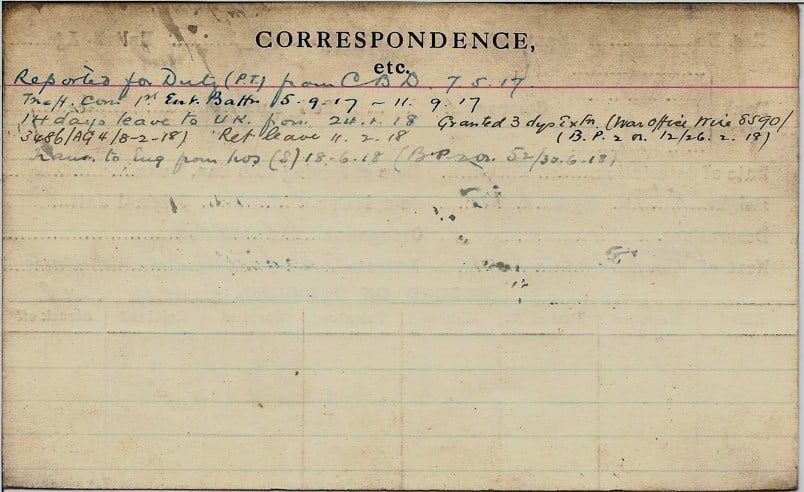 CORRESPONDENCE,
etc.
Reported for Duty (P.T.) from C B D. 7 5. 17.
Com 1st Ent. Battn 5-9-17 - 11. 9. 17
14 days leave to U.K. from 24.1.18 Granted 3 dys Extn. (War Office Wire 8590/
3486/AG4/8-2-18) Ret leave 11. 2. 18 (B.P. 2 12/26. 2. 18)
to Eng from hos (S) 18-6-18 (B.P. 2 52/30-6-18)